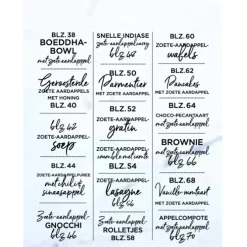 BLZ.38
BOEDDHA-
BOWL
met zoete aardappel
Geroosterde
ZOETE AARDAPPELS
MET HONING
BLZ.40
blz 42
ZOETE-AARDAPPEL-
soep
BLZ.44
ZOETE-AARDAPPELPUREE
met chili &
sinaasappel
Zoete-aardappel-
GNOCCHI
blz 46
SNELLE INDIASE
zoete-aardappelcurry
blz 48
BLZ. 50
Parmentier
MET ZOETE AARDAPPEL
BLZ.52
ZOETE-AARDAPPEL-
gratin
Zoete-aardappel-
crumble met tomaat
BLZ.54
ZOETE-AARDAPPEL-
lasagne
blz 56
Zoete-aardappel-
ROLLETJES
BLZ.58
BLZ.60
ZOETE-AARDAPPEL-
wafels
BLZ.62
Pancakes
MET ZOETE AARDAPPEL
BLZ.64
CHOCO-PECANTAART
met zoete aardappel
BROWNIE
met zoete aardappel
blz 66
BLZ.68
Vanille-muntcaart
MET ZOETE AARDAPPEL
APPELCOMPOTE
met zoete aardappel
blz 70